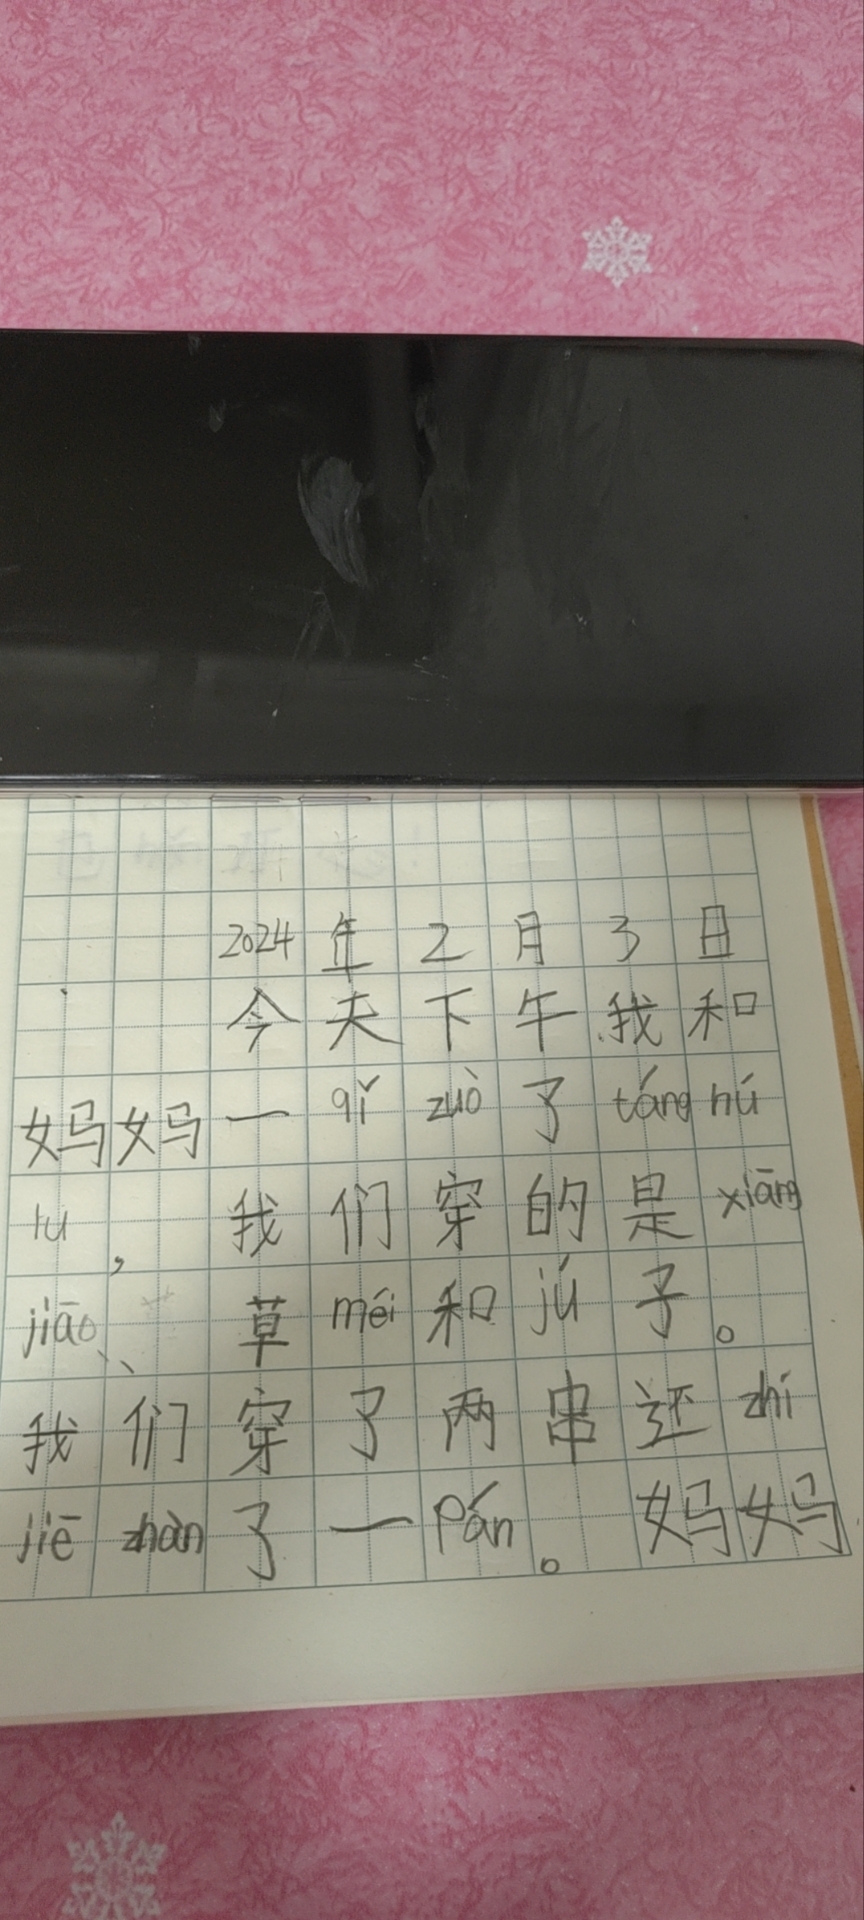 2024年2月3日
今天下午我和
妈妈一qǐ zuò了táng hú
lu，我们穿的是xiāng
jiāo、草méi和jú子。
我们穿了两串还zhí
jiē zhàn了一pán。妈妈